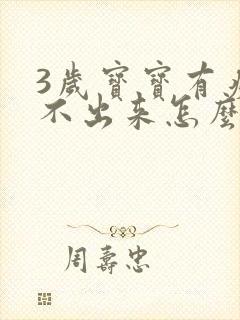 3歲寶寶有
不出来怎麼
周壽忠